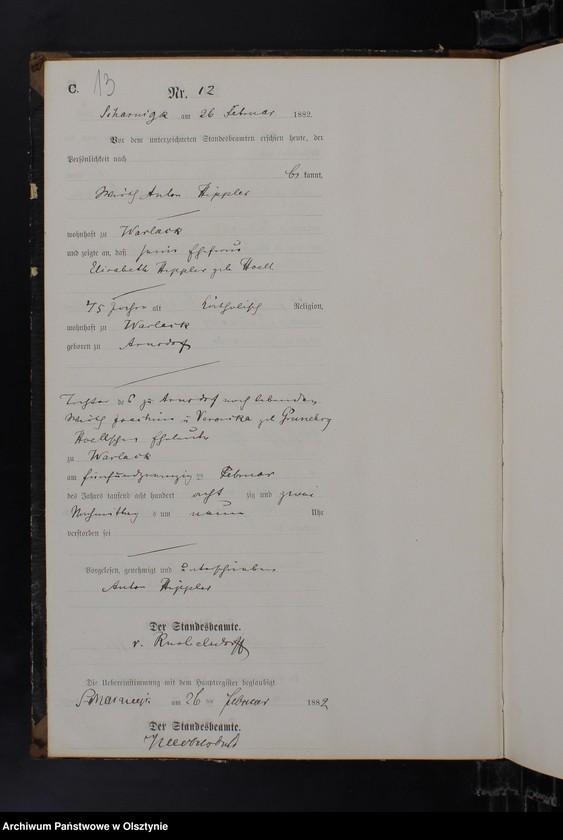 C. 13
Nr. 12
Scharnigk am 26 Februar 1882.
Vor dem unterzeichneten Standesbeamten erschien heute, der
Persönlichkeit nach
be kannt,
Wirth Anton Hippler
wohnhaft zu Warlack
und zeigte an, daß seine Ehefrau
Elisabeth Hippler geb Hoell
Jahre alt katholisch Religion,
wohnhaft zu Warlack
geboren zu Arnsdorf
Tochter des zu Arnsdorf noch lebenden
Wirth Joachim u Veronika geb Gruneberg
Hoellschen Eheleute
zu Warlack
am fünfundzwanzig ten Februar
des Jahres tausend acht hundert acht zig und zwei
Nachmittag s um neun Uhr
verstorben sei
Vorgelesen, genehmigt und unterschrieben
Anton Hippler
Der Standesbeamte.
v.
Die Uebereinstimmung mit dem Hauptregister beglaubigt.
Scharnigk am 26 ten Februar 1882
Der Standesbeamte.
Archiwum Państwowe w Olsztynie